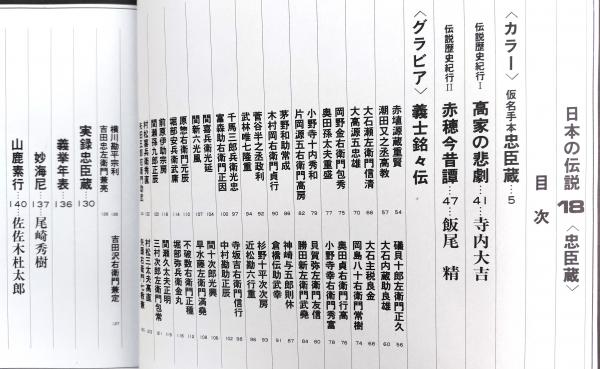 日本の伝説 18〈忠臣蔵〉
目次
〈カラー〉仮名手本忠臣蔵…5
伝説歴史紀行Ⅰ
高家の悲劇…41…寺内大吉
伝説歴史紀行Ⅱ
赤穂今昔譚…47…飯尾 精
〈グラビア〉義士銘々伝
赤埴源蔵重賢 54
潮田又之丞高教 57
大石瀬左衛門信清 66
大高源五忠雄 70
奥田孫太夫重盛 75
岡野金右衛門包秀 77
小野寺十内秀和 79
片岡源五右衛門高房 82
茅野和助常成 86
木村岡右衛門貞行 90
菅谷半之丞政利 92
武林唯七隆重 94
千馬三郎兵衛光忠 97
富森助右衛門正因 100
間喜兵衛光延 104
間新六光風 106
原惣右衛門元辰
堀部安兵衛武庸
前原伊助宗房
間瀬孫九郎正辰
村松喜兵衛秀直
礒貝十郎左衛門正久 56
大石内蔵助良雄 60
大石主税良金 68
岡島八十右衛門常樹 74
奥田貞右衛門行高 76
小野寺幸右衛門秀富 78
貝賀弥左衛門友信 81
勝田新左衛門武堯 84
神崎与五郎則休 87
倉橋伝助武幸 91
杉野十平次次房 93
近松勘六行重 96
寺坂吉右衛門信行 98
中村勘助正辰 102
間十次郎光興 105
早水藤左衛門満堯
不破数右衛門正種
堀部弥兵衛金丸
間瀬久太夫正明
三村次郎左衛門包常
村松三太夫高直
横川勘平宗利
吉田忠左衛門兼亮
吉田沢右衛門兼定 127
実録忠臣蔵…130
義挙年表…136
妙海尼…137…尾崎秀樹
山鹿素行…140…佐佐木杜太郎